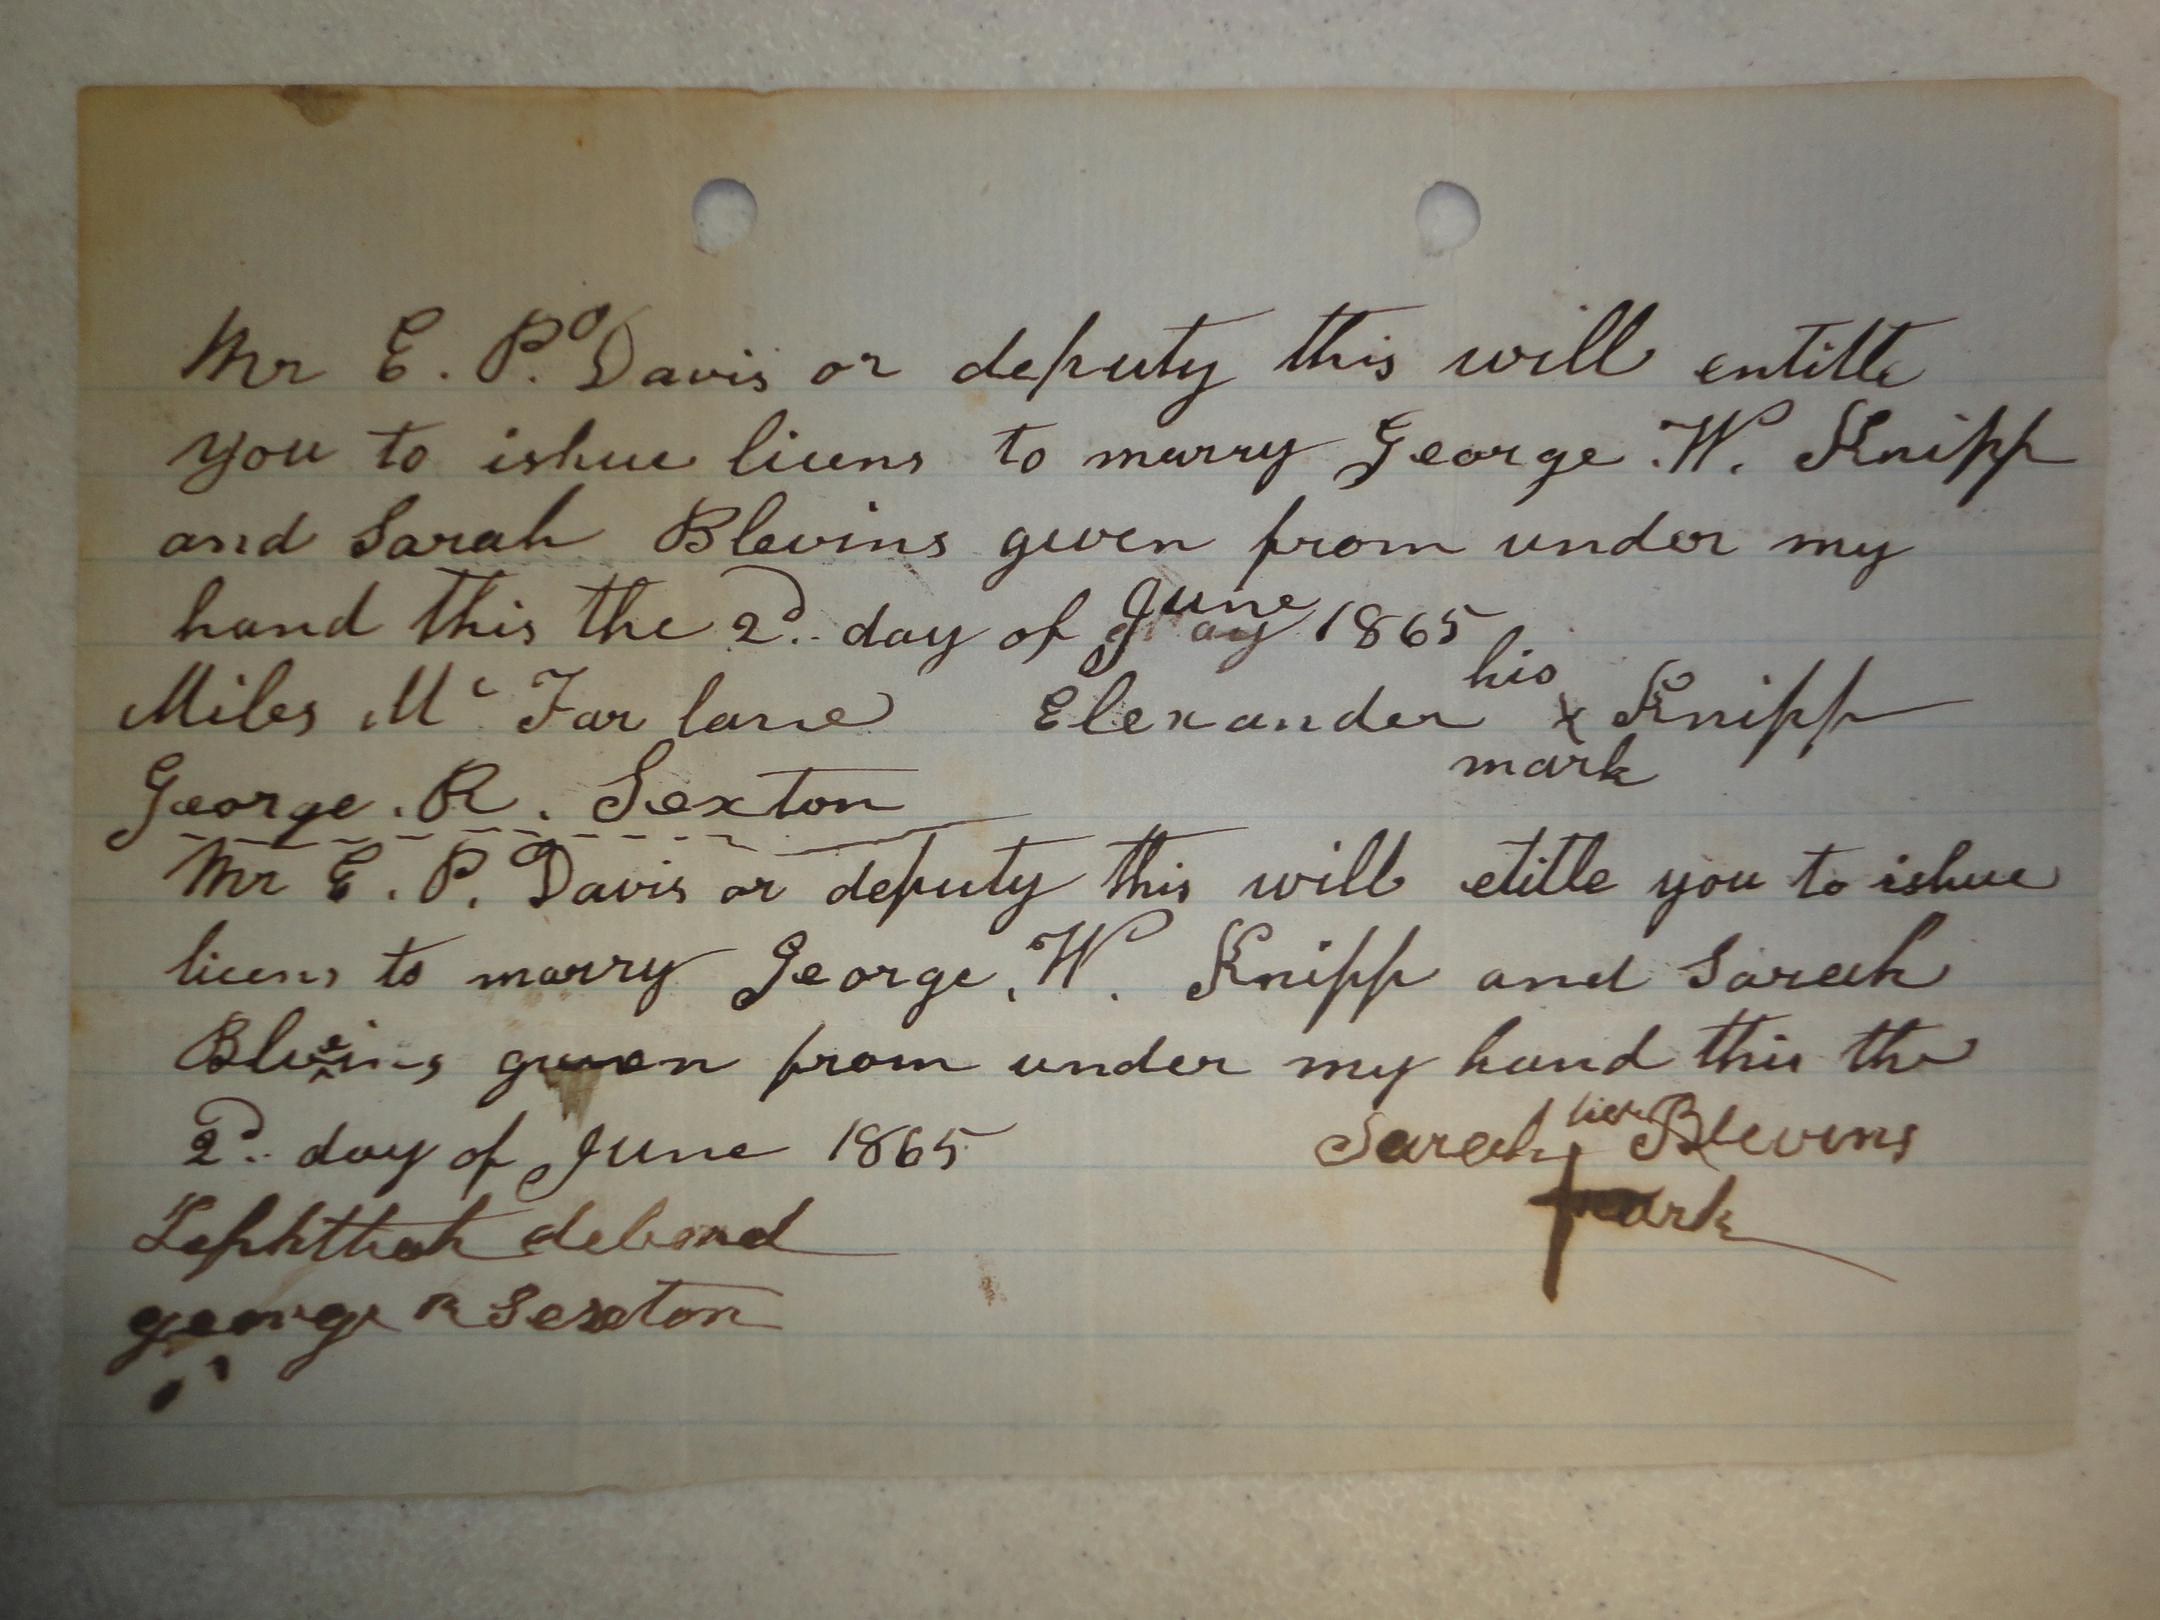 Mr E. P. Davis or deputy this will entitle
you to ishue licens to marry George W. Knipp
and Sarah Blevins given from under my
hand this the 2d. day of June 1865
Miles Mc Farlane Elexander his x mark Knipp
George. R. Sexton
Mr E. P. Davis or deputy this will etitle you to ishue
licens to marry George. W. Knipp and Sarah
Blevins given from under my hand this the
2d. day of June 1865 Sarah her Blevins
mark
george R Sexton